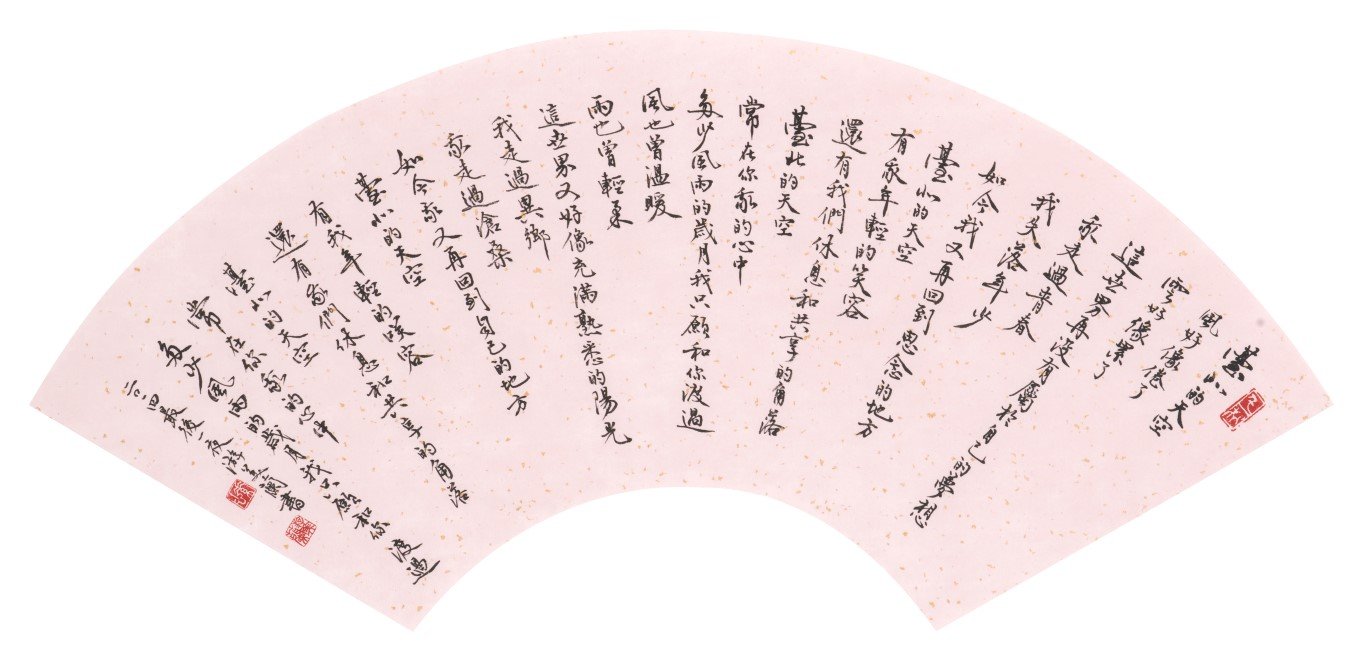 臺北的天空
風好像倦了
雲好像累了
這世界再沒有屬於自己的夢想
我走過青春
我失落年少
如今我又再回到思念的地方
臺北的天空
有我年輕的笑容
還有我們休息和共享的角落
臺北的天空
常在你我的心中
多少風雨的歲月我只願和你渡過
風也曾溫暖
雨也曾輕柔
這世界又好像充滿熟悉的陽光
我走過異鄉
我走過滄桑
如今我又再回到自己的地方
臺北的天空
有我年輕的笑容
還有我們休息和共享的角落
臺北的天空
常在你我的心中
多少風雨的歲月我只願和你渡過
二〇一四最後一夜游美蘭書